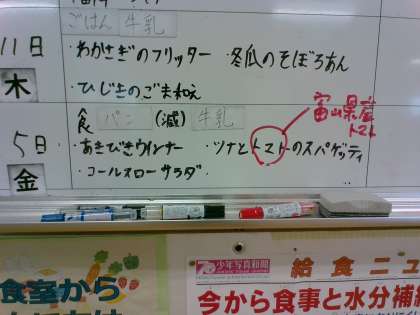 ごはん 牛乳
11日 ・わかさぎのフリッター ・冬瓜のそぼろあん
木 ・ひじきのごま和え
食 パン (減) 牛乳
富山県産
トマト
5日 ・あらびきウィンナー ・ツナとトマトのスパゲッティ
金 ・コールスローサラダ
食室から
少年写真新聞
給食ニュ
今から食事と水分補給